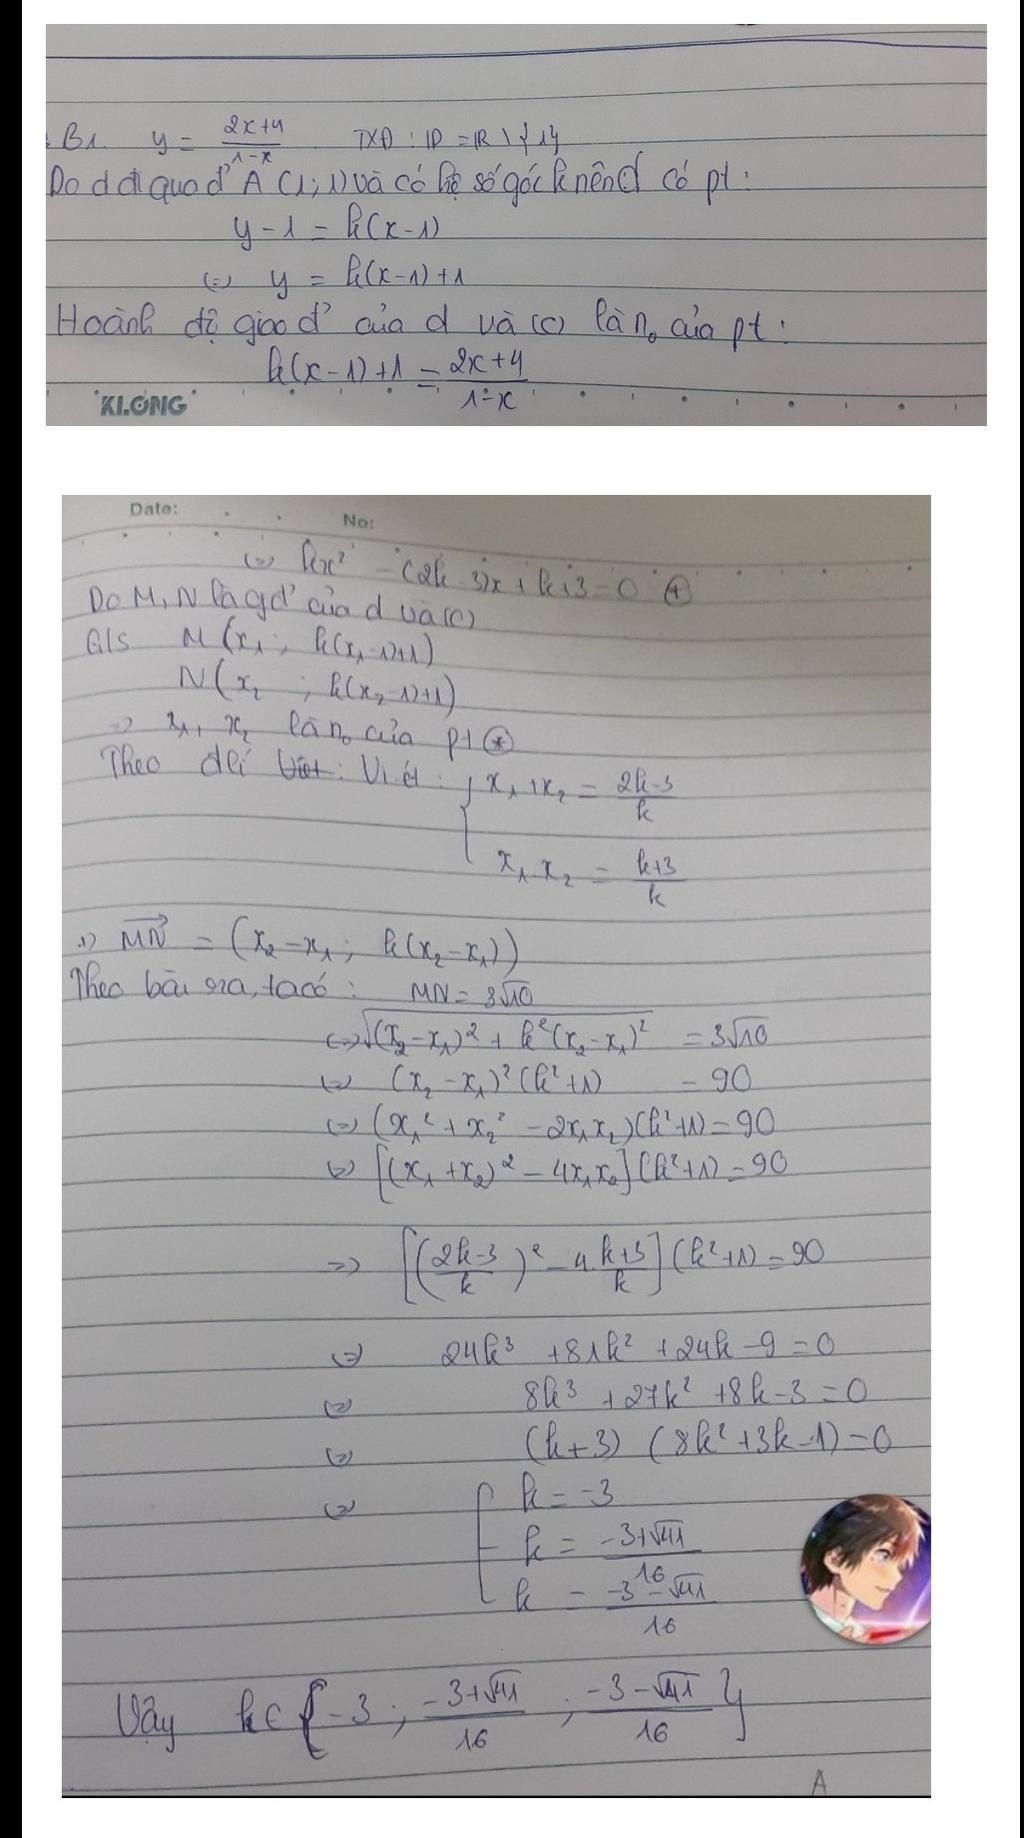 B1. y = \frac{2x+4}{1-x} TXĐ: D = R \ {1}
Do d đi qua đ' A (1; 1) và có hệ số góc k nên d có pt:
y - 1 = k(x-1)
(=) y = k(x-1)+1
Hoành độ giao đ' của d và (C) là n₀ của pt:
k(x-1)+1 = \frac{2x+4}{1-x}
KLONG
Date:
No:
(=) kx² - (2k-3)x + k+3 = 0 (*)
Do M, N là gđ' của d và (C)
G/S M(x₁; k(x₁-1)+1)
N(x₂; k(x₂-1)+1)
=) x₁, x₂ là n₀ của pt (*)
Theo đlí Viét: { x₁+x₂ = \frac{2k-3}{k}
x₁.x₂ = \frac{k+3}{k}
+) \overrightarrow{MN} = (x₂-x₁; k(x₂-x₁))
Theo bài ra, ta có: MN = 3√10
(=) \sqrt{(x₂-x₁)² + k²(x₂-x₁)²} = 3√10
(=) (x₂-x₁)²(k²+1) = 90
(=) (x₁²+x₂² - 2x₁x₂)(k²+1) = 90
(=) [(x₁+x₂)² - 4x₁x₂](k²+1) = 90
=) [(\frac{2k-3}{k})² - 4.\frac{k+3}{k}](k²+1) = 90
(=) 24k³ + 81k² + 24k - 9 = 0
(=) 8k³ + 27k² + 8k - 3 = 0
(=) (k+3) (8k²+3k-1) = 0
(=) [ k = -3
k = \frac{-3+√41}{16}
k = \frac{-3-√41}{16}
Vậy k ∈ { -3; \frac{-3+√41}{16}; \frac{-3-√41}{16} }
A